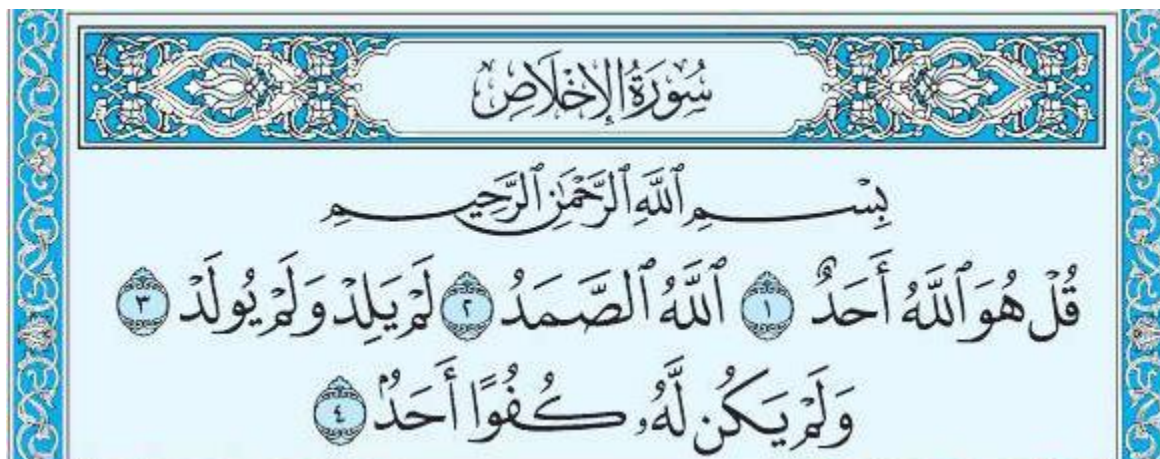 سُورَةُ الإِخْلَاصِ
بِسْمِ ٱللَّهِ ٱلرَّحْمَٰنِ ٱلرَّحِيمِ
قُلْ هُوَ ٱللَّهُ أَحَدٌ ١ ٱللَّهُ ٱلصَّمَدُ ٢ لَمْ يَلِدْ وَلَمْ يُولَدْ ٣
وَلَمْ يَكُن لَّهُۥ كُفُوًا أَحَدٌۢ ٤